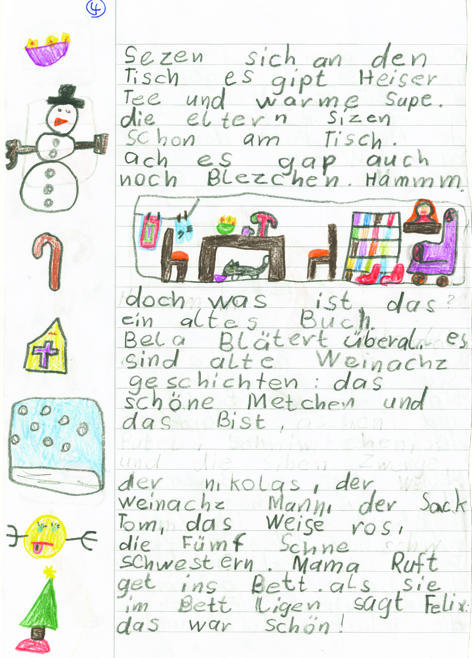 4
Sezen sich an den
Tisch es gipt Heiser
Tee und warme Supe.
die eltern sizen
schon am Tisch.
ach es gap auch
noch Blezchen. Hammm.
doch was ist das?
ein altes Buch.
Bela Blätert überal. es
sind alte Weinachz
geschichten: das
schöne Metchen und
das Bist,
der nikolas, der
weinachz Mann, der Sack
Tom, das Weise ros,
die Fümf Schne
schwestern. Mama Ruft
get ins Bett. als sie
im Bett ligen sagt Felix:
das war schön!